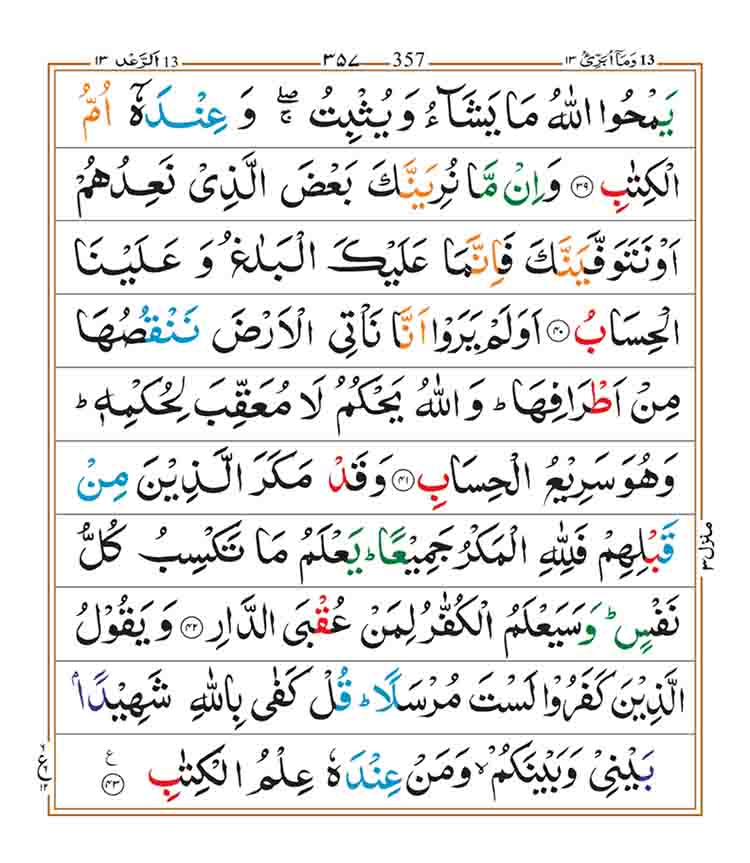 13 وَمَآ اُبَرِّئُ ١٣ 357 ٣٥٧ 13 اَلرَّعْد ١٣
يَمْحُوا اللّٰهُ مَا يَشَآءُ وَ يُثْبِتُ ۚۖ وَ عِنْدَهٗۤ اُمُّ
الْكِتٰبِ ﴿۳۹﴾ وَ اِنْ مَّا نُرِيَنَّكَ بَعْضَ الَّذِيْ نَعِدُهُمْ
اَوْ نَتَوَفَّيَنَّكَ فَاِنَّمَا عَلَيْكَ الْبَلٰغُ وَ عَلَيْنَا
الْحِسَابُ ﴿۴۰﴾ اَوَلَمْ يَرَوْا اَنَّا نَاْتِي الْاَرْضَ نَنْقُصُهَا
مِنْ اَطْرَافِهَا ؕ وَ اللّٰهُ يَحْكُمُ لَا مُعَقِّبَ لِحُكْمِهٖ ؕ
وَهُوَ سَرِيْعُ الْحِسَابِ ﴿۴۱﴾ وَ قَدْ مَكَرَ الَّذِيْنَ مِنْ
قَبْلِهِمْ فَلِلّٰهِ الْمَكْرُ جَمِيْعًا ؕ يَعْلَمُ مَا تَكْسِبُ كُلُّ
نَفْسٍ ؕ وَ سَيَعْلَمُ الْكُفّٰرُ لِمَنْ عُقْبَى الدَّارِ ﴿۴۲﴾ وَ يَقُوْلُ
الَّذِيْنَ كَفَرُوْا لَسْتَ مُرْسَلًا ؕ قُلْ كَفٰى بِاللّٰهِ شَهِيْدًۢا
بَيْنِيْ وَ بَيْنَكُمْ ۙ وَمَنْ عِنْدَهٗ عِلْمُ الْكِتٰبِ ﴿۴۳﴾ ع
منزل ٣